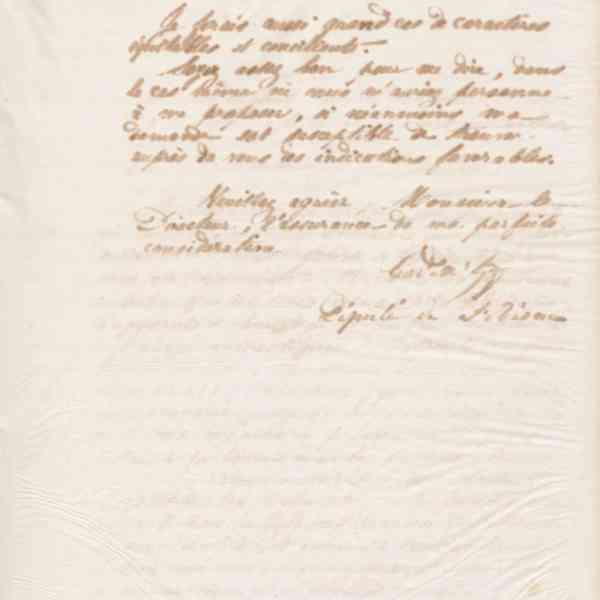 Je ferais aussi grand cas de caractères
équitables et conciliants. —
Soyez assez bon pour me dire, dans
le cas même où vous n'auriez personne
à me proposer, si néanmoins ma
demande est susceptible de trouver
auprès de vous des indications favorables.
Veuillez agréer Monsieur le
Directeur, l'assurance de ma parfaite
considération
Député de